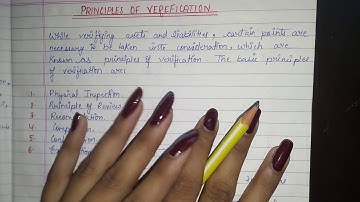 PRINCIPLES OF VEREFICATION
While verifying assets and liabilities, certain points are
necessary to be taken into consideration, which are
known as principles of verification. The basic principles
of verification are:
1. Physical Inspection.
2. Principle of Review
3.
4.
5.
6.